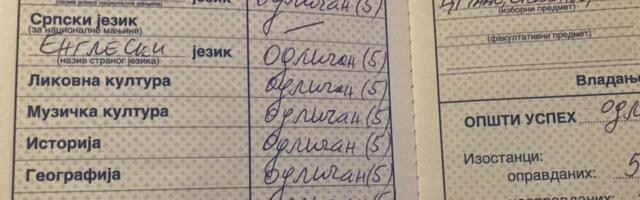 (назив језика националне мањине) одличан (5)
Српски језик
(за националне мањине)
ЕНГЛЕСКИ језик одличан (5)
(назив страног језика)
Ликовна култура одличан (5)
Музичка култура одличан (5)
Историја одличан (5)
Географија одличан (5)
(изборни предмет)
(факултативни предмет)
Владање
ОПШТИ УСПЕХ одл
Изостанци:
оправданих: 5